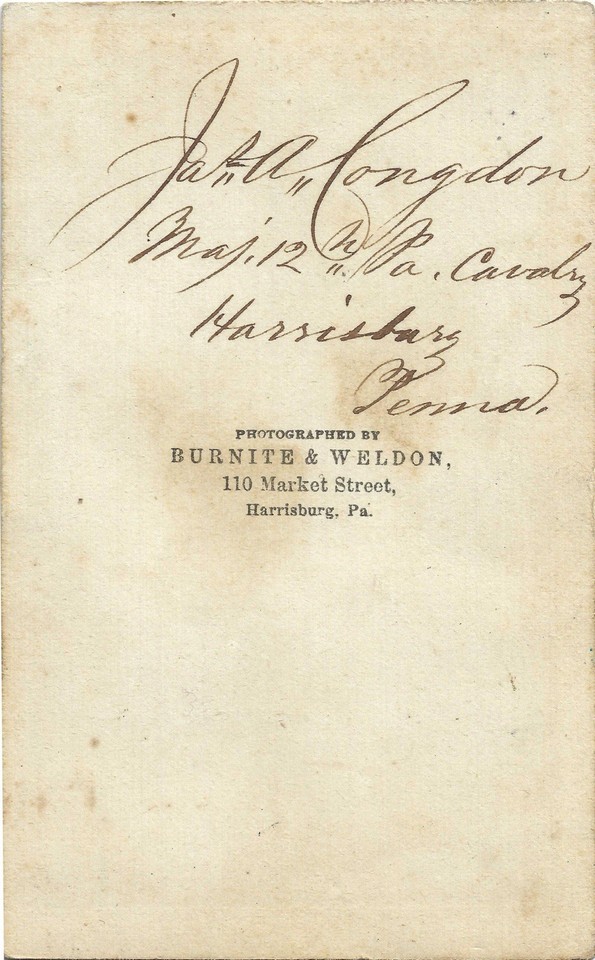 Jas. A. Congdon
Maj. 12th Pa. Cavalry
Harrisburg
Penna.
PHOTOGRAPHED BY
BURNITE & WELDON,
110 Market Street,
Harrisburg, Pa.